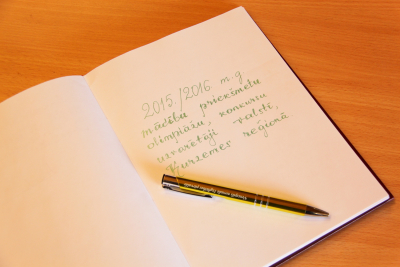 2015./2016. m.g
mācību priekšmetu
olimpiāžu, konkursu
uzvarētāji valstī,
Kurzemes reģionā